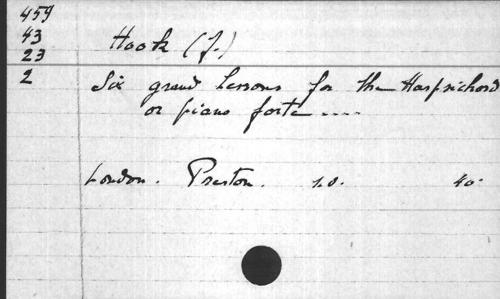 459
43
23
2
Hook (J.)
Six grand Lessons for the Harpsichord
or piano forte .....
London. Preston. s.d. 4o.